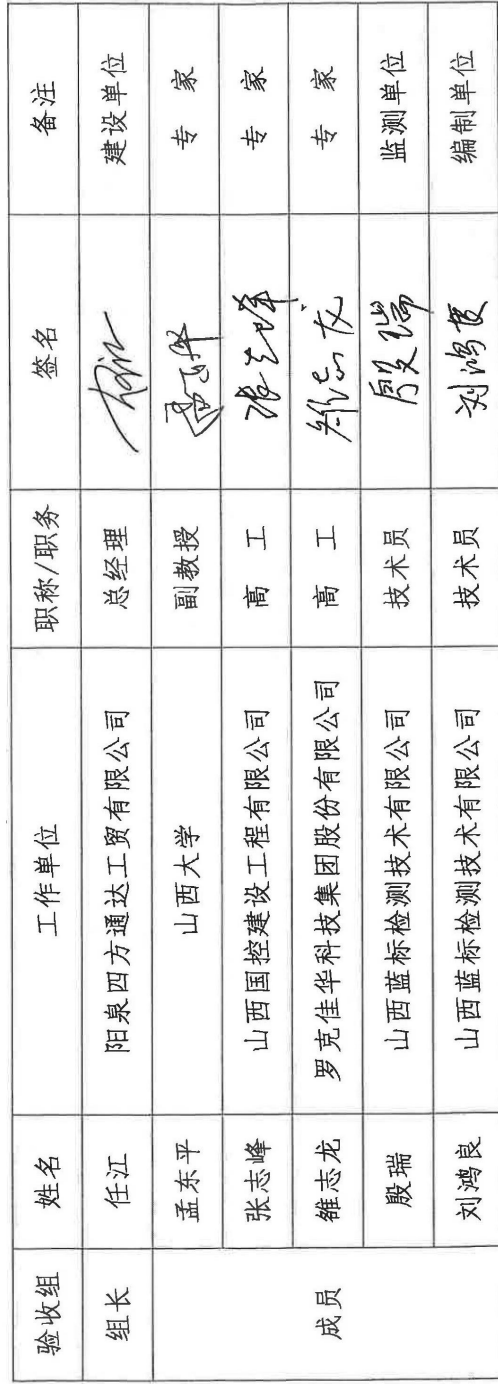 验收组 姓名 工作单位 职称/职务 签名 备注
组长 任江 阳泉四方通达工贸有限公司 总经理 建设单位
成员 孟东平 山西大学 副教授 专家
张志峰 山西国控建设工程有限公司 高工 张志峰 专家
雒志龙 罗克佳华科技集团股份有限公司 高工 专家
殷瑞 山西蓝标检测技术有限公司 技术员 殷瑞 监测单位
刘鸿良 山西蓝标检测技术有限公司 技术员 刘鸿良 编制单位